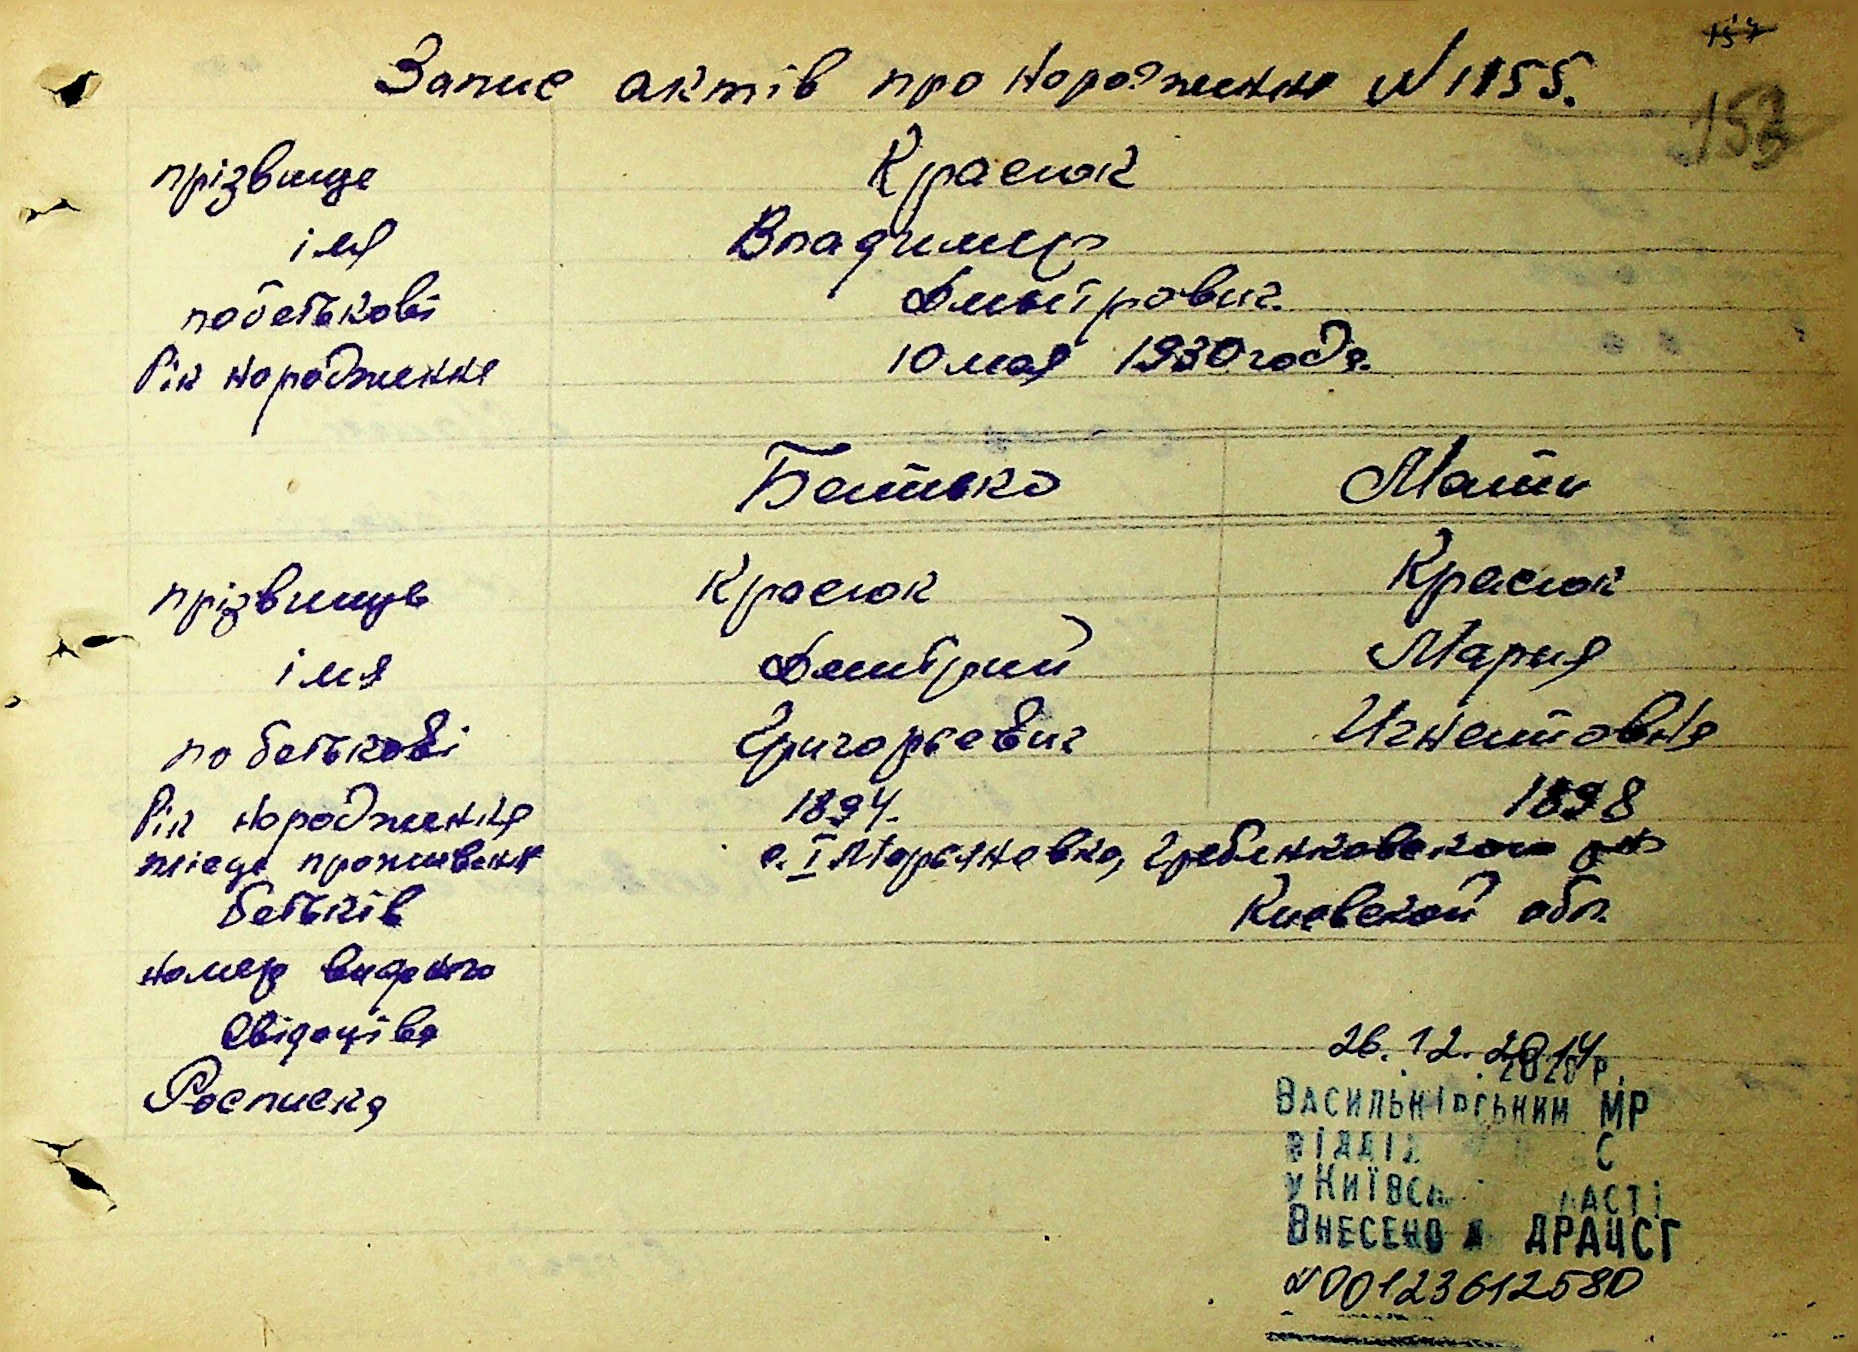 157
153
Запис актів про народження N 1155.
прізвище Красюк
імя Владимир
по батькові Дмитрович.
Рік народження 10 мая 1930 года.
Батько Мати
прізвище Красюк Красюк
імя Дмитрий Мария
по батькові Григорьевич Игнатовна
Рік народження 1894. 1898
місце проживання с. I Марьяновка, Гребенковского р-н
батьків Киевской обл.
номер виданого
свідоцтва
Росписка
26.12.2014
202 р.
ВАСИЛЬКІВСЬКИМ МР
ВІДДІЛ С
У КИЇВСЬ ЛАСТІ
ВНЕСЕНО ДРАЦСГ
N 00123612580